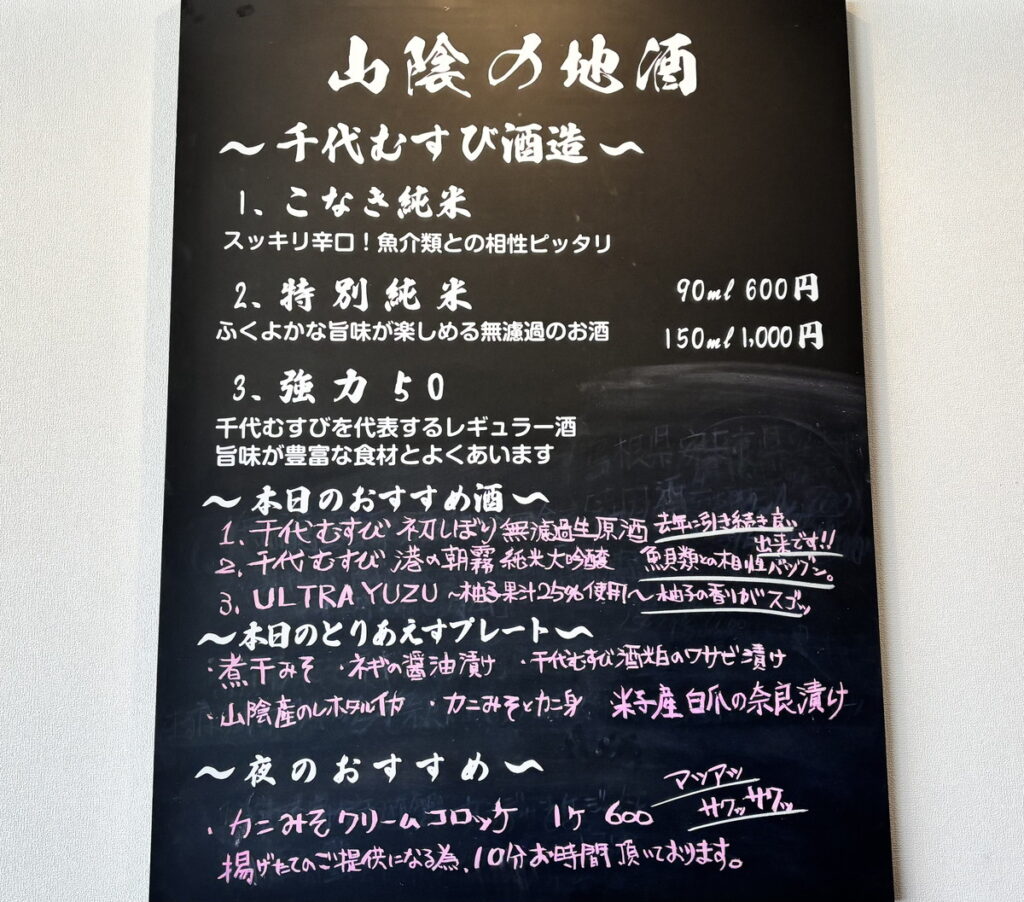 山陰の地酒
～千代むすび酒造～
1、こなき純米
スッキリ辛口！魚介類との相性ピッタリ
2、特別純米
ふくよかな旨味が楽しめる無濾過のお酒
90ml 600円
150ml 1,000円
3、強力50
千代むすびを代表するレギュラー酒
旨味が豊富な食材とよくあいます
～本日のおすすめ酒～
1、千代むすび 初しぼり無濾過生原酒 去年に引き続き良い出来です!!
2、千代むすび 港の朝霧 純米大吟醸 魚貝類との相性バツグン。
3、ULTRA YUZU ～柚子果汁25%使用～ 柚子の香りがスゴッ
～本日のとりあえずプレート～
・煮干みそ ・ネギの醤油漬け ・千代むすび酒粕のワサビ漬け
・山陰産のホタルイカ ・カニみそとカニ身 米子産白爪の奈良漬け
～夜のおすすめ～
・カニみそクリームコロッケ 1ケ 600
アツアツ
サクッサクッ
揚げたてのご提供になる為、10分お時間頂いております。